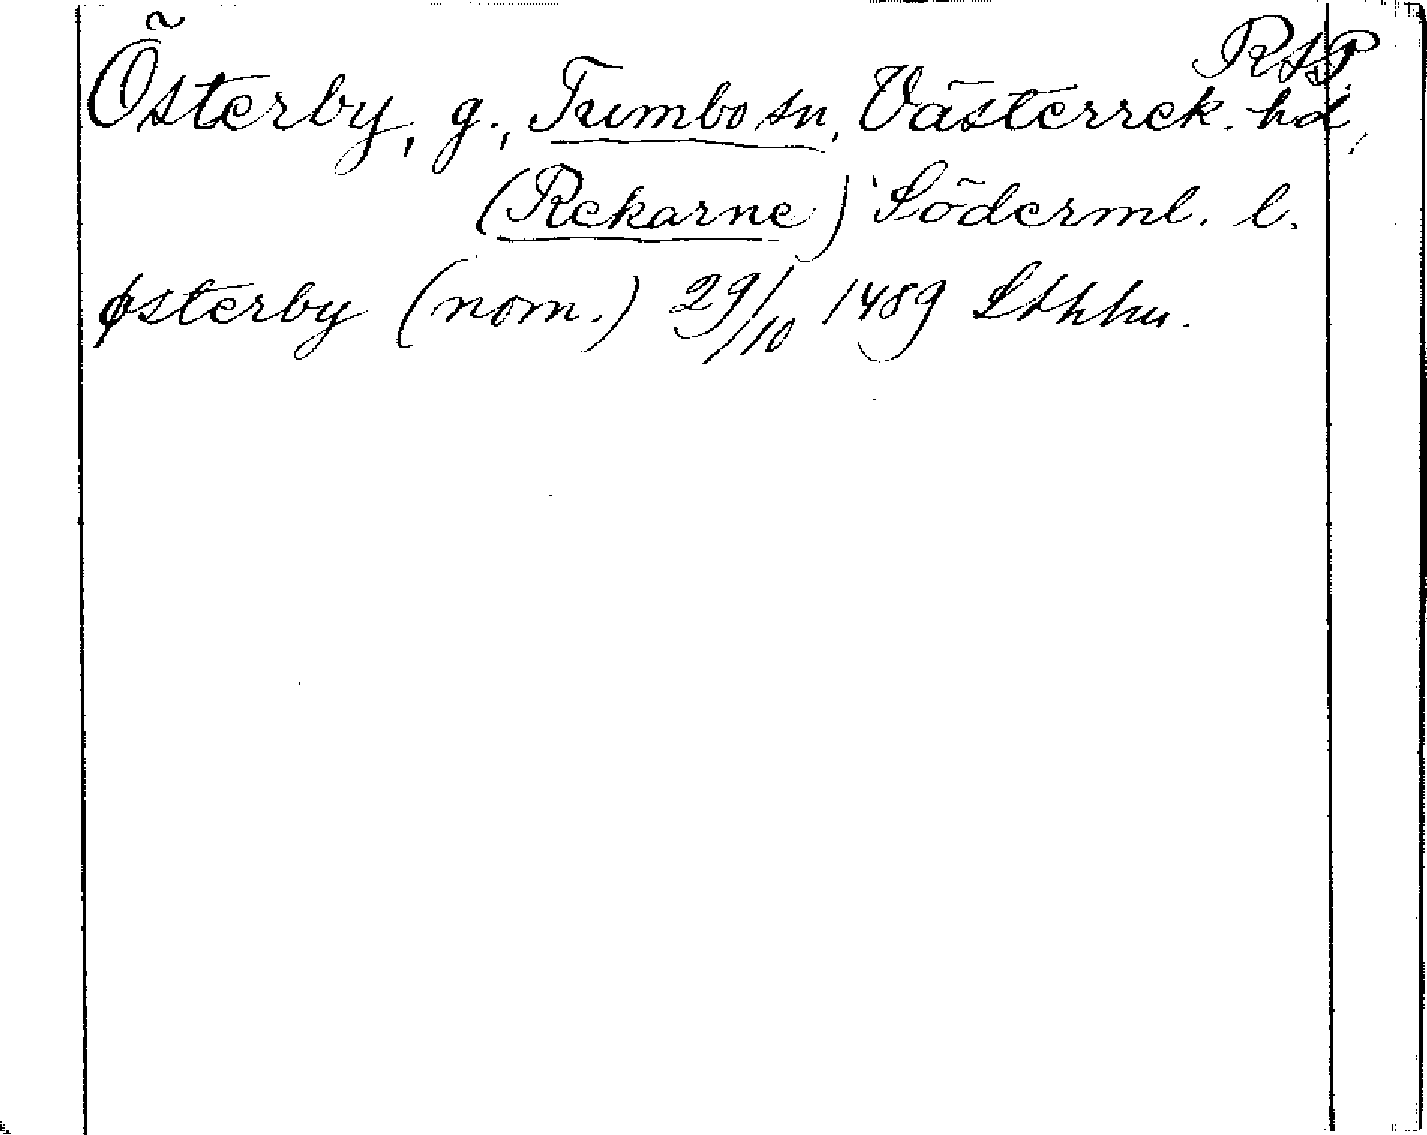 RAP
Österby, g., Tumbo sn, Västerrek. hd,
(Rekarne) Söderml. l.
østerby (nom.) 29/10 1489 Sthhu.